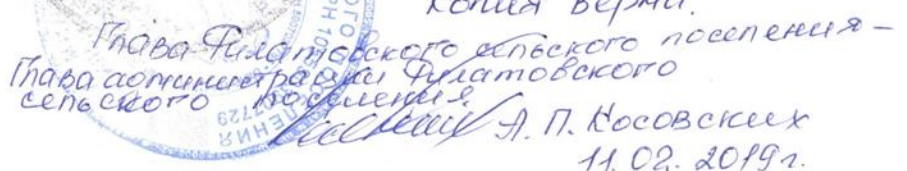 Копия верна.
Глава Филатовского сельского поселения –
Глава администрации Филатовского
сельского поселения
А. П. Косовских
11.02.2019г.
7729